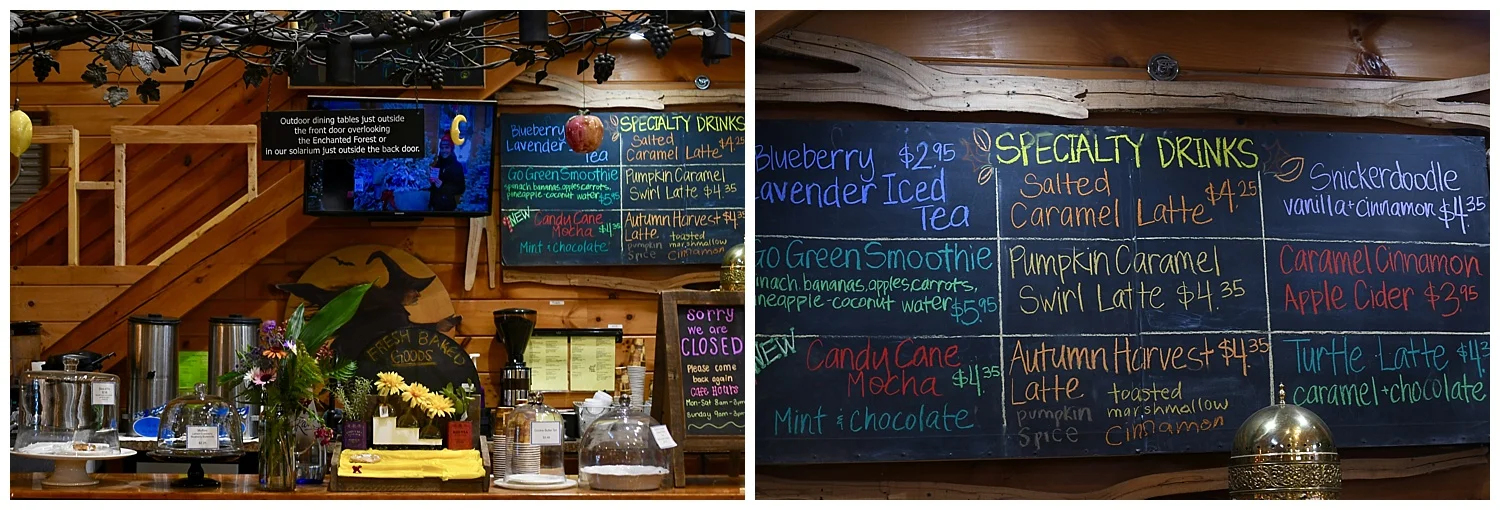 Outdoor dining tables just outside
the front door overlooking
the Enchanted Forest or
in our solarium just outside the back door.
Blueberry
Lavender
Tea
Go Green Smoothie
spinach, bananas, apples, carrots,
pineapple-coconut water $5.95
NEW Candy Cane
Mocha $4.35
Mint & Chocolate
SPECIALTY DRINKS
Salted $4.25
Caramel Latte
Pumpkin Caramel
Swirl Latte $4.35
Autumn Harvest $4.35
Latte toasted
pumpkin marshmallow
Spice Cinnamon
FRESH BAKED
GOODS
SORRY
we are
CLOSED
Please come
back again
Cafe Hours
Mon-Sat 8am-
Sunday 9am-
Blueberry $2.95
Lavender Iced
Tea
Go Green Smoothie
inach, bananas, apples, carrots,
neapple-coconut water $5.95
NEW
Candy Cane
Mocha $4.35
Mint & Chocolate
SPECIALTY DRINKS
Salted $4.25
Caramel Latte
Pumpkin Caramel
Swirl Latte $4.35
Autumn Harvest $4.35
Latte toasted
pumpkin marshmallow
Spice Cinnamon
Snickerdoodle
vanilla+cinnamon $4.35
Caramel Cinnamon
Apple Cider $3.95
Turtle Latte $4.3
caramel+chocolate